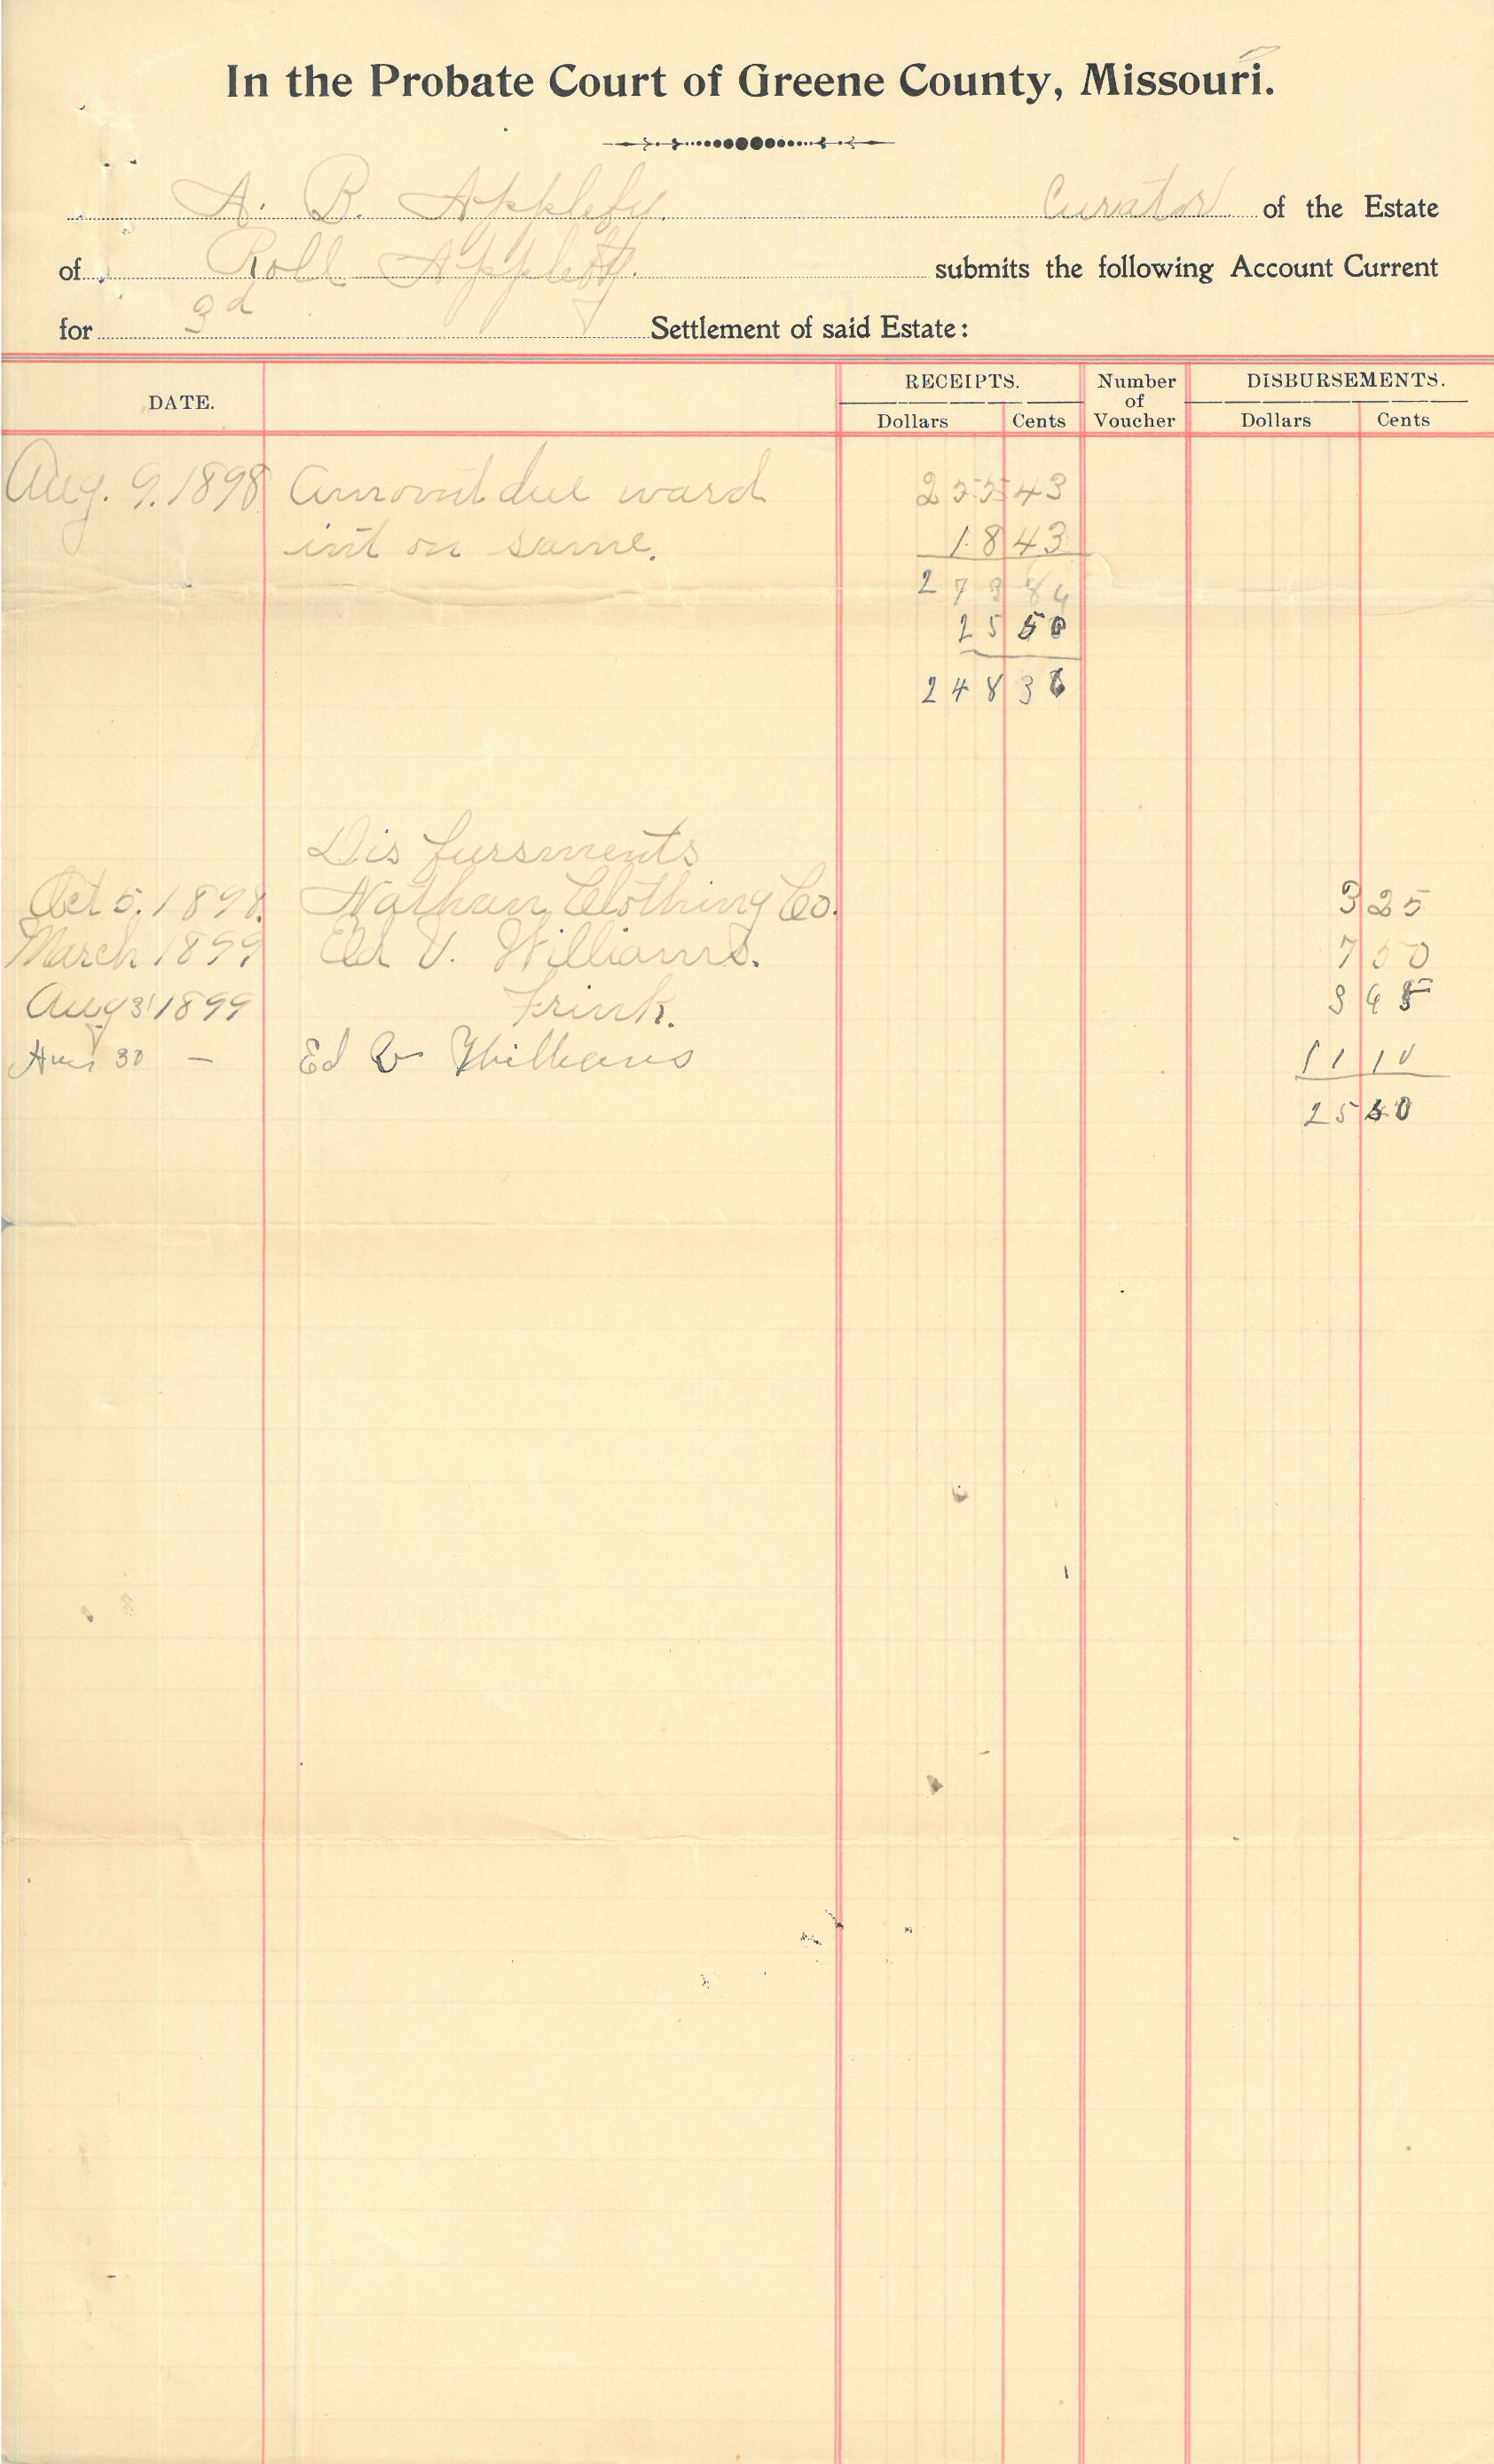 In the Probate Court of Greene County, Missouri.
A. B. Appleby. Curator of the Estate
of Roll Appleby. submits the following Account Current
for 3d Settlement of said Estate:
DATE. RECEIPTS. Number of Voucher DISBURSEMENTS.
Dollars Cents Dollars Cents
Aug. 9. 1898 Amount due ward 255 43
int on same. 18 43
273 86
25 50
248 36
Disbursments
Oct 5. 1898. Nathan Clothing Co. 3 25
March 1899 Ed V. Williams. 7 50
Aug 31 1899 Frink. 3 65
Aug 30 — Ed V Williams 11 10
25 50